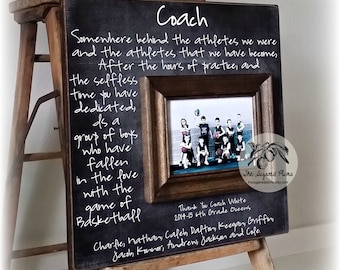 Coach
Somewhere behind the athletes we were
and the athletes that we have become,
After the hours of practice, and
the selfless
time you have
dedicated,
Is a
group of boys
who have
fallen
in the love
with the
game of
Basketball
Thank You Coach White
2014-15 6th Grade
Charlie, Nathan, Caleb, Dalton, Keegan, Griffin
Jacob, Konnor, Andrew, Jackson and Cole